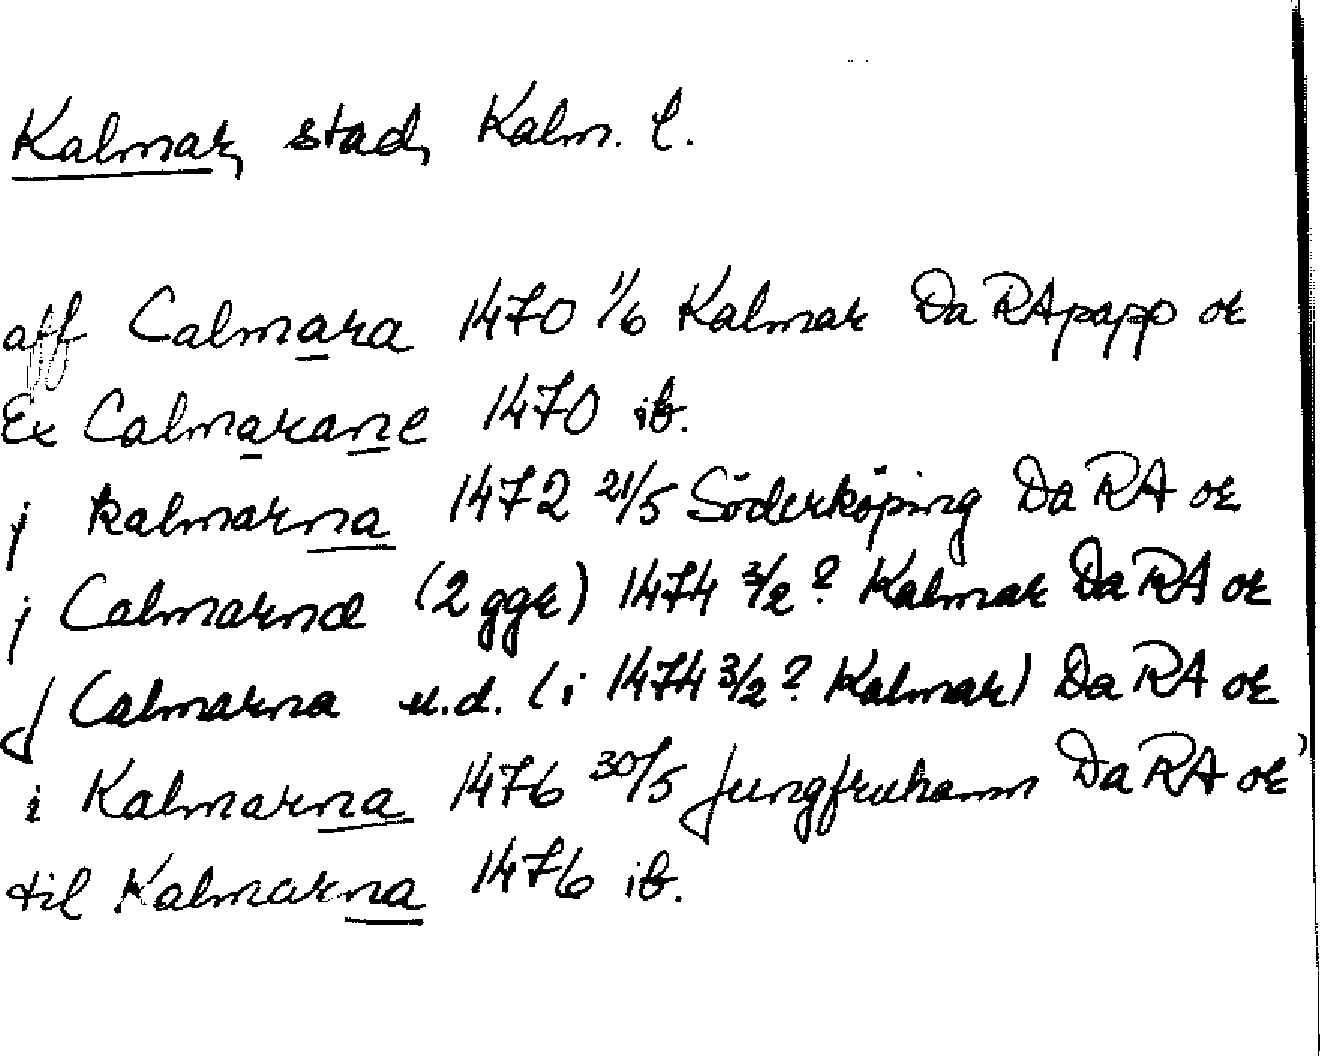 Kalmar, stad, Kalm. l.
aff Calmara 1470 1/6 Kalmar Da RApapp or
Ex Calmarane 1470 ib.
j kalmarna 1472 21/5 Söderköping Da RA or
j Calmarnæ (2 ggr) 1474 3/2? Kalmar Da RA or
J Calmarna u.d. (i 1474 3/2? Kalmar) Da RA or
i Kalmarna 1476 30/5 Jungfruhamn Da RA or
til Kalmarna 1476 ib.